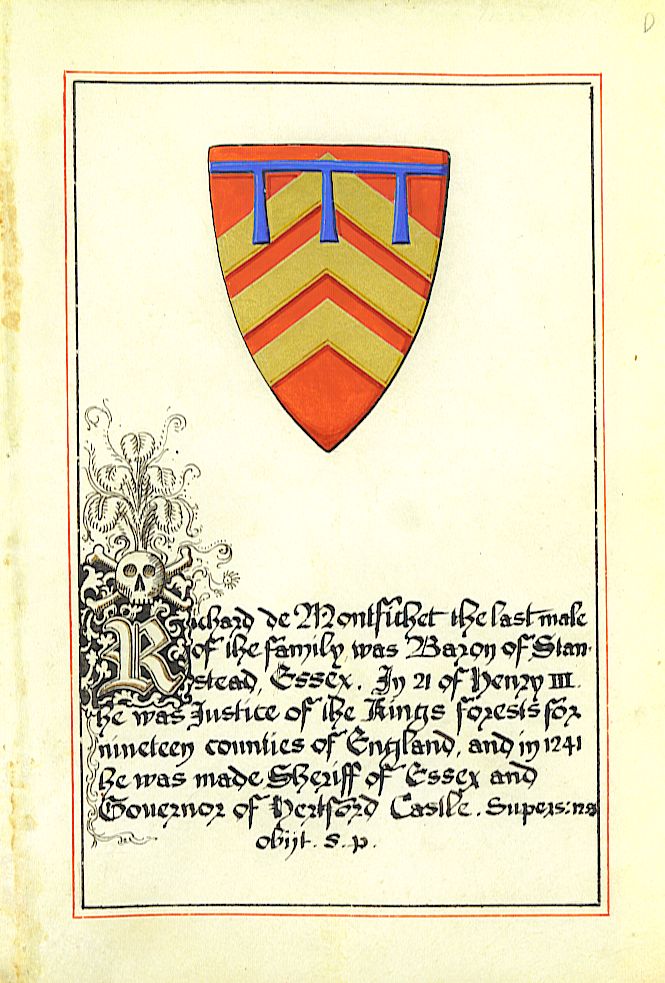 D
Richard de Montfichet the last male
of the family was Baron of Stan-
stead, Essex. In 21 of Henry III.
he was Justice of the Kings forests for
nineteen counties of England, and in 1241
he was made Sheriff of Essex and
Governor of Hertford Castle.
obijt. S. p.